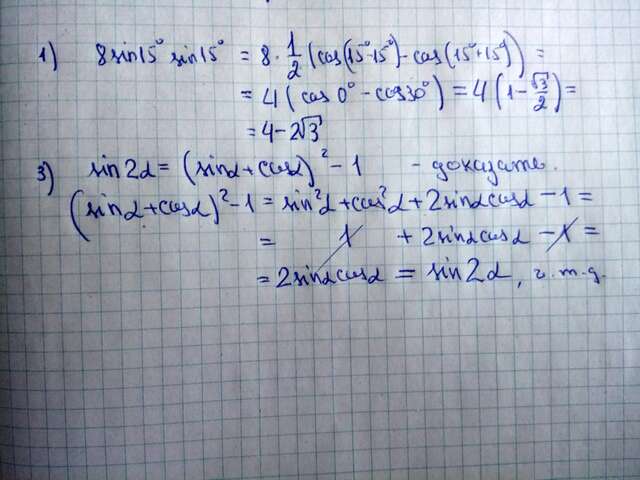 1) 8sin15° sin15° = 8·1/2(cos(15°-15°)-cos(15°+15°)) =
= 4(cos0°-cos30°) = 4(1-√3/2) =
= 4-2√3
3) sin2α = (sinα+cosα)²-1 - доказать.
(sinα+cosα)²-1 = sin²α+cos²α+2sinαcosα-1 =
= 1 + 2sinαcosα - 1 =
= 2sinαcosα = sin2α, ч.т.д.